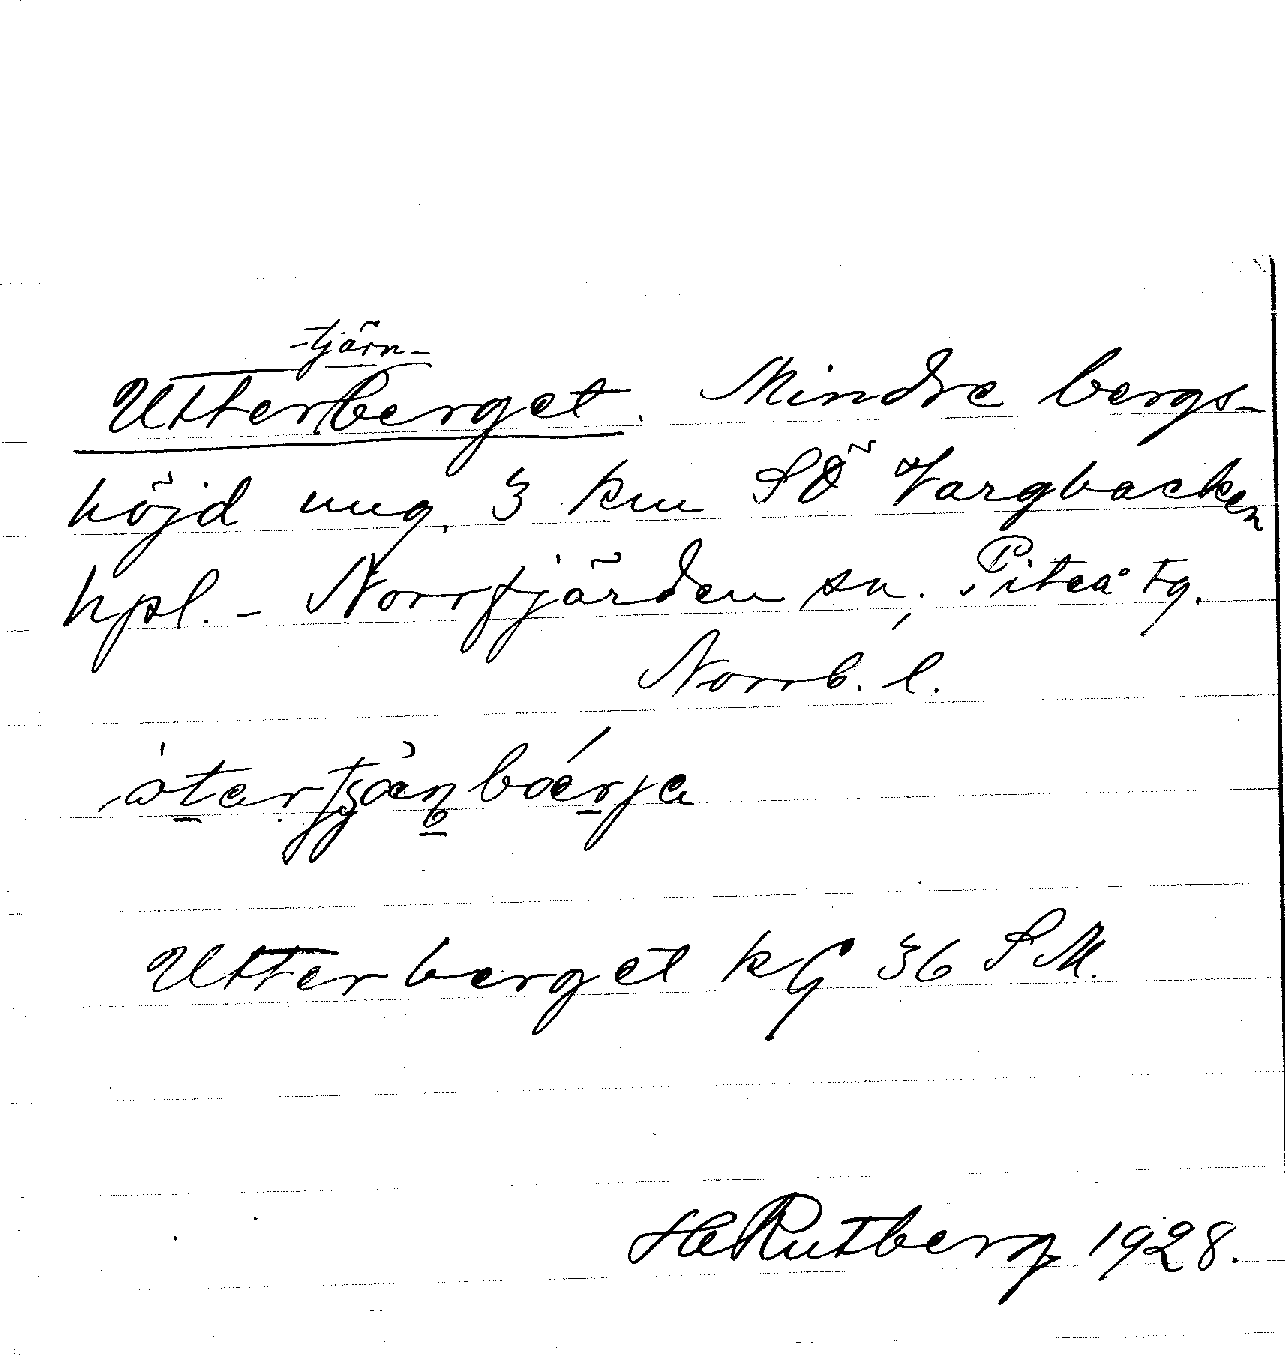 -tjärn-
Utterberget. Mindre bergs-
höjd ung. 3 km SÖ Vargbacken
hpl. - Norrfjärden sn, Piteå tg.
Norrb. l.
Utterberget kG 36 SM.
H Rutberg 1928.